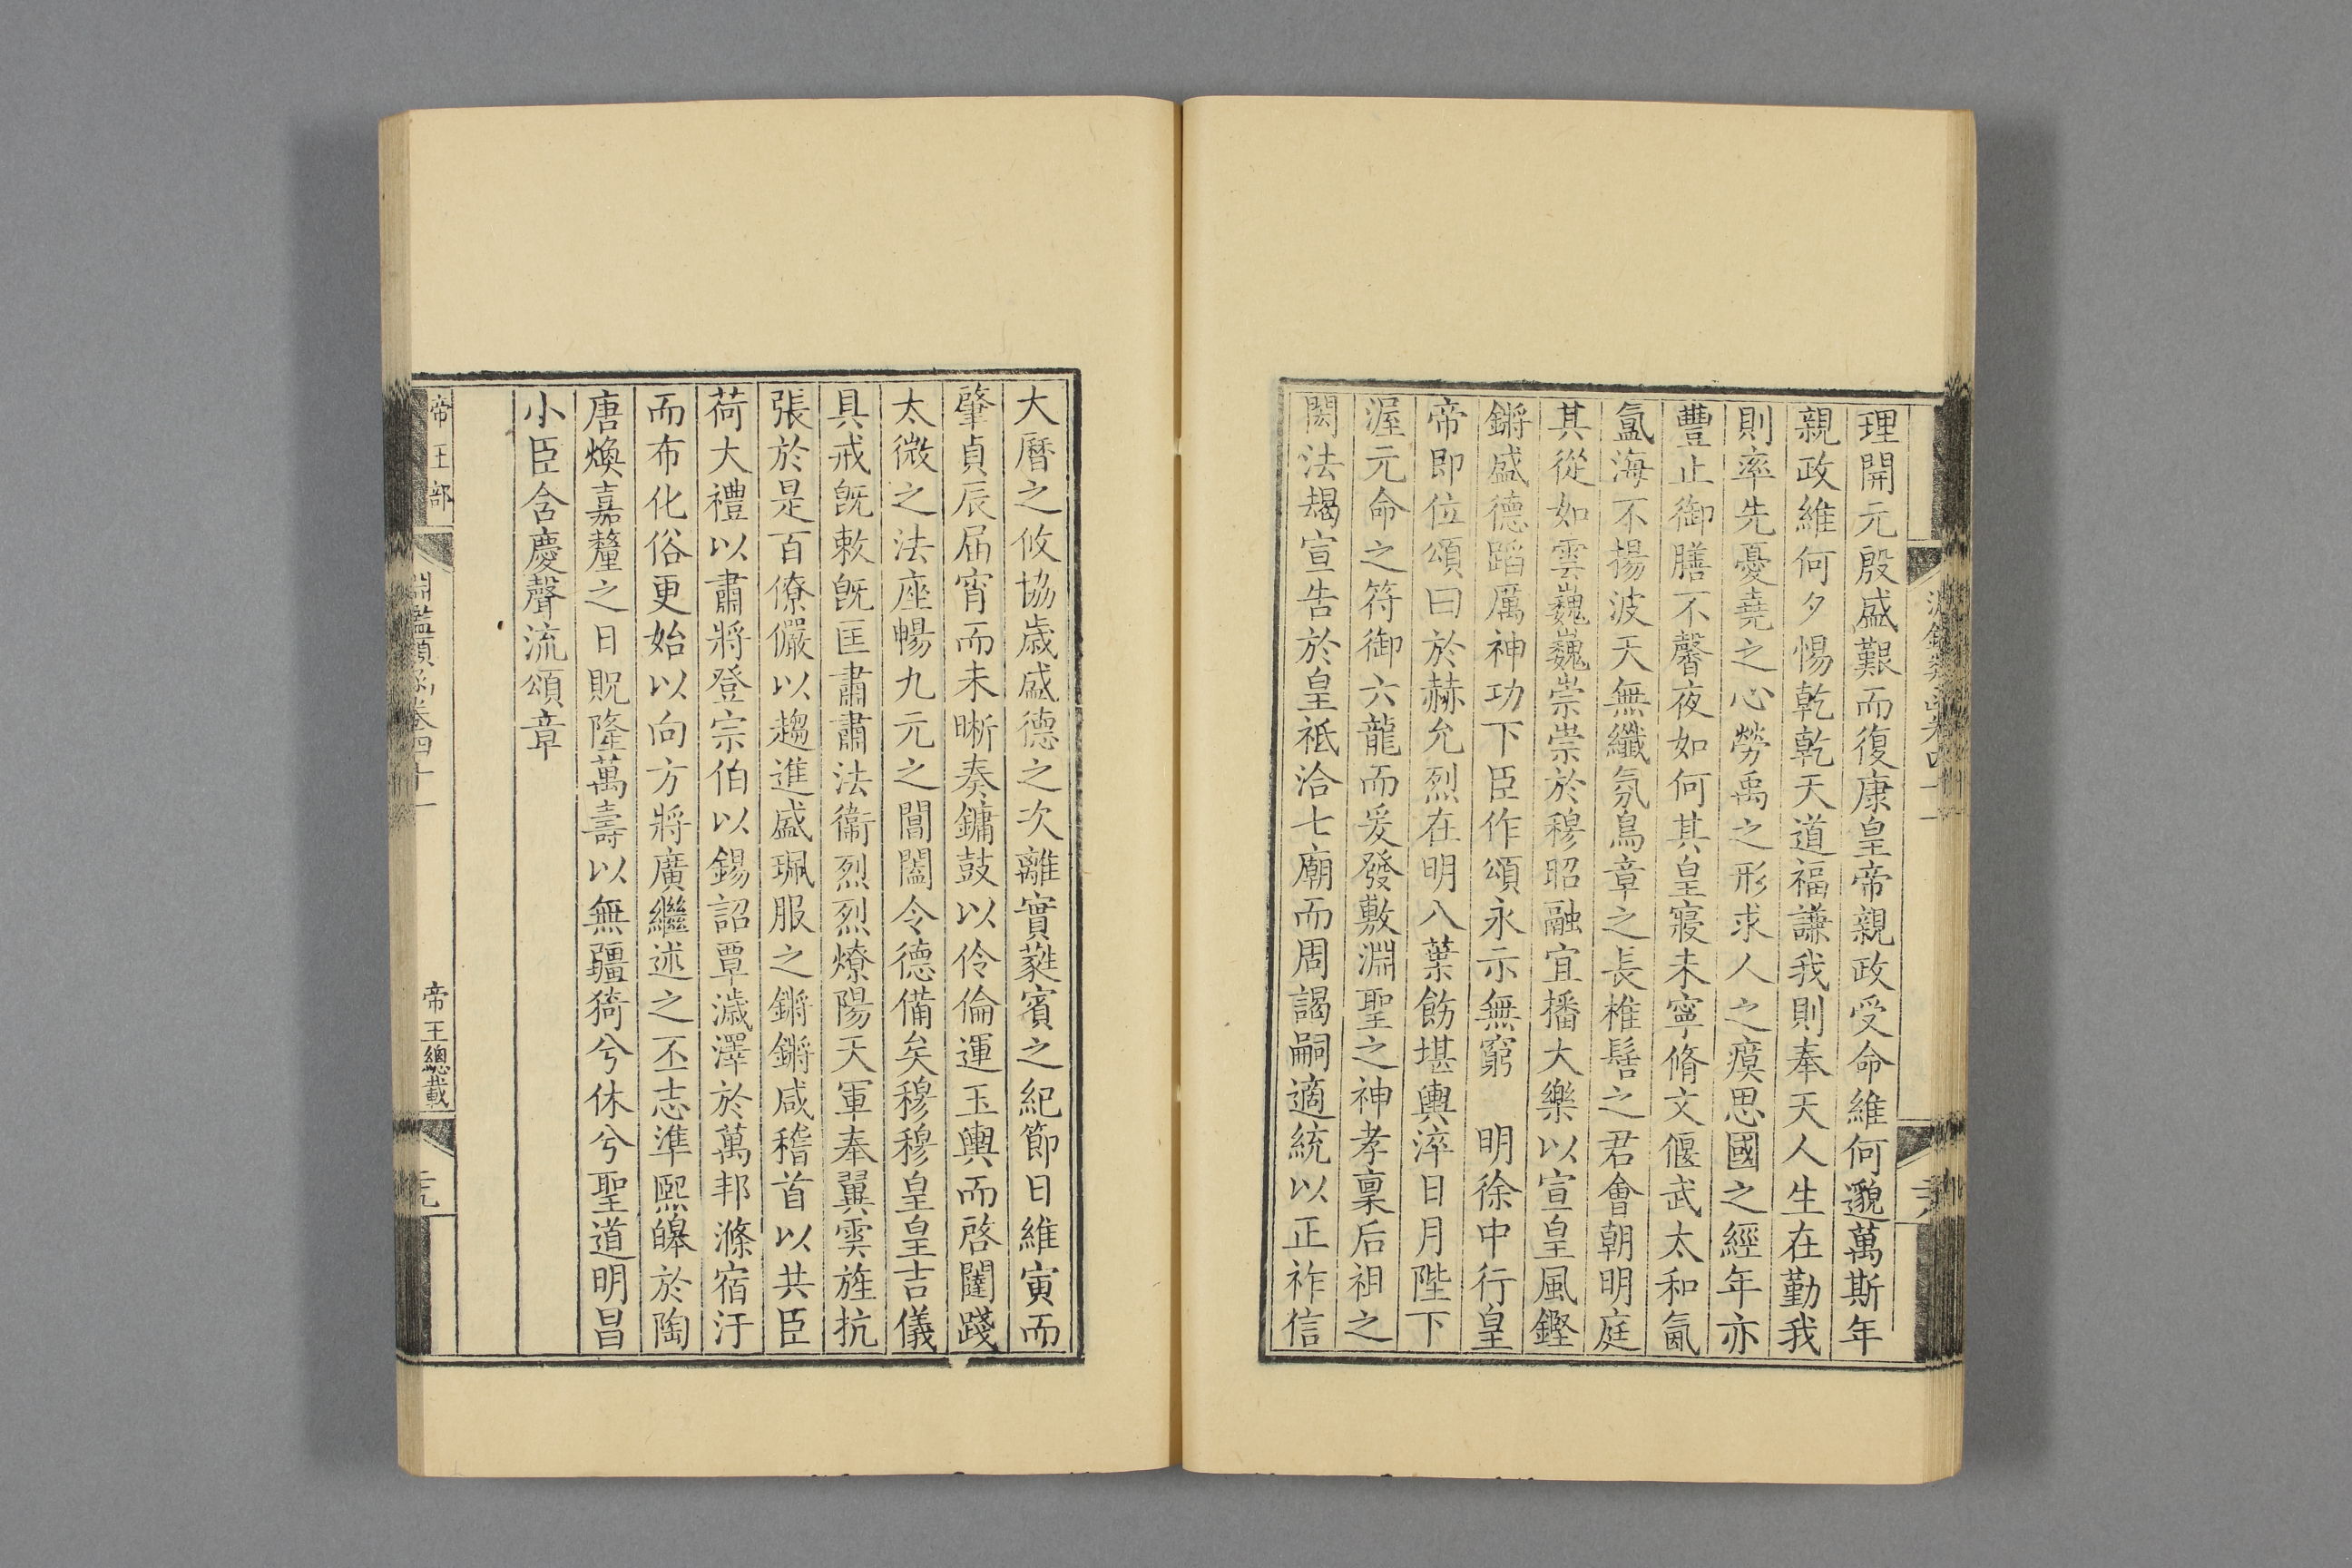 理開元殷盛艱而復康皇帝親政受命維何邈萬斯年
親政維何夕惕乾乾天道福謙我則奉天人生在勤我
則率先憂堯之心勞禹之形求人之瘼思國之經年亦
豐止御膳不馨夜如何其皇寢未寧脩文偃武太和氤
氳海不揚波天無纖氛鳥章之長椎髻之君會朝明庭
其從如雲巍巍崇崇於穆昭融宜播大樂以宣皇風鏗
鏘盛德蹈厲神功下臣作頌永示無窮　明徐中行皇
帝即位頌曰於赫允烈在明八葉飭堪輿淬日月陛下
渥元命之符御六龍而爰發敷淵聖之神孝稟后祖之
閎法朅宣告於皇祗洽七廟而周謁嗣適統以正祚信
大曆之攸協歲盛德之次離實蕤賓之紀節日維寅而
肇貞辰届宵而未晰奏鏞鼓以伶倫運玉輿而啓闥踐
太微之法座暢九元之閶闔令德備矣穆穆皇皇吉儀
具戒旣敕旣匡肅肅法衞烈烈燎陽天軍奉翼雲旌抗
張於是百僚儼以趨進盛珮服之鏘鏘咸稽首以共臣
荷大禮以肅將登宗伯以錫詔覃濊澤於萬邦滌宿汙
而布化俗更始以向方將廣繼述之丕志準熙皞於陶
唐煥嘉釐之日貺隆萬壽以無疆猗兮休兮聖道明昌
小臣含慶聲流頌章
帝王部
淵鑑類函卷四十一
帝王總載